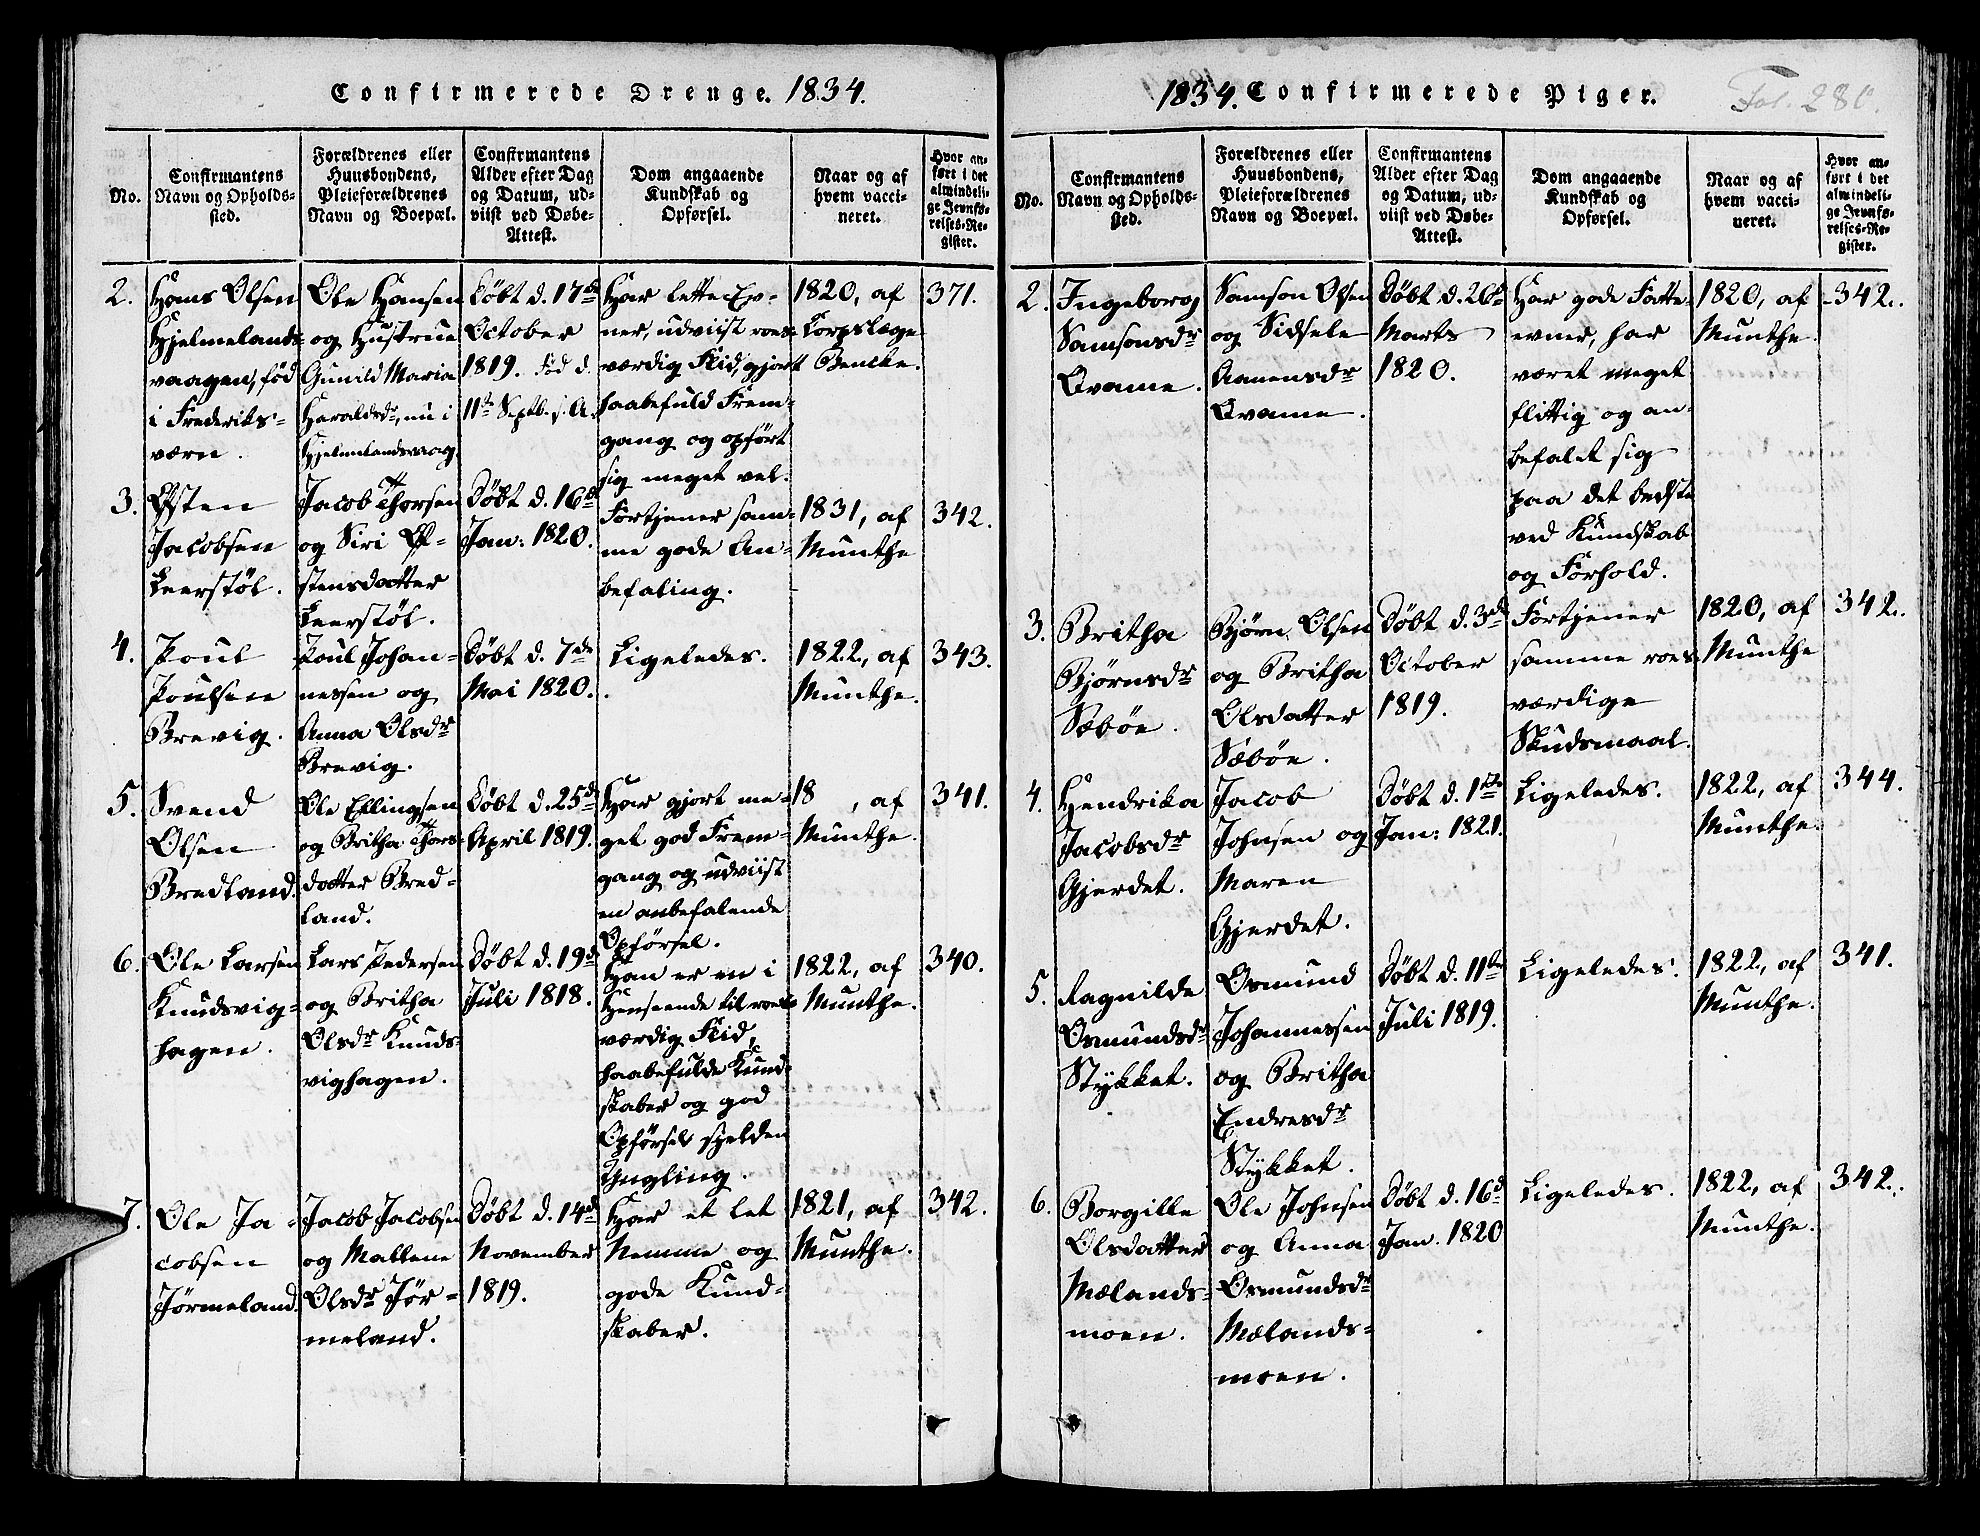 Confirmerede Drenge. 1834.
No.
Confirmantens
Navn og Opholds-
sted.
Forældrenes eller
Huusbondens,
Pleieforældrenes
Navn og Boepæl.
Confirmantens
Alder efter Dag
og Datum, ud-
viist ved Døbe-
Attest.
Dom angaaende
Kundskab og
Opførsel.
Naar og af
hvem vacci-
neret.
Hvor an-
ført i det
almindeli-
ge Jevnfø-
relses-Re-
gister.
2.
Hans Olsen
Hjelmelands-
vaagen, fød
i Frederiks-
værn.
Ole Hansen
og Hustrue
Gunild Maria
Haraldsdr, nu i
Hjelmelandsvaag.
Døbt d. 17de
October
1819. Fød d.
11te Septb. s. A.
Har lette Ev-
ner, udviist roes-
værdig Flid, gjort
haabefuld Frem-
gang og opført
sig meget vel.
1820, af
Korpslæge
Bencke.
371.
3.
Østen
Jacobsen
Leerstøl.
Jacob Thorsen
og Siri Ø-
stensdatter
Leerstøl.
Døbt d. 16de
Jan: 1820.
Fortjener sam-
me gode An-
befaling.
1831, af
Munthe
342.
4.
Poul
Poulsen
Brevig.
Poul Johan-
nessen og
Anna Olsdr
Brevig.
Døbt d. 7de
Mai 1820.
Ligeledes.
1822, af
Munthe.
343.
5.
Svend
Olsen
Bredland.
Ole Ellingsen
og Britha Thors-
datter Bred-
land.
Døbt d. 25de
April 1819.
Har gjort me-
get god Frem-
gang og udviist
en anbefalende
Opførsel.
18 , af
Munthe.
341.
6.
Ole Larsen
Knudsvig-
hagen.
Lars Pedersen
og Britha
Olsdr Knuds-
vighagen.
Døbt d. 19de
Juli 1818.
Han er en i
Henseende til roes-
værdig Flid,
haabefulde Kund-
skaber og god
Opførsel sjelden
Yngling.
1822, af
Munthe.
340.
7.
Ole Ja-
cobsen
Jørmeland.
Jacob Jacobsen
og Mallene
Olsdr Jør-
meland.
Døbt d. 14de
November
1819.
Har et let
Nemme og
gode Kund-
skaber.
1821, af
Munthe.
342.
1834. Confirmerede Piger.
Fol. 280.
No.
Confirmantens
Navn og Opholds-
sted.
Forældrenes eller
Huusbondens,
Pleieforældrenes
Navn og Boepæl.
Confirmantens
Alder efter Dag
og Datum, ud-
viist ved Døbe-
Attest.
Dom angaaende
Kundskab og
Opførsel.
Naar og af
hvem vacci-
neret.
Hvor an-
ført i det
almindeli-
ge Jevnfø-
relses-Re-
gister.
2.
Ingeborg
Samsonsdr
Qvame.
Samson Olsen
og Sidsele
Aanensdr
Qvame.
Døbt d. 26de
Marts
1820.
Har gode Fatte-
evner, har
været meget
flittig og an-
befalet sig
paa det bedste
ved Kundskab
og Forhold.
1820, af
Munthe.
342.
3.
Britha
Bjørnsdr
Sæbøe.
Bjørn Olsen
og Britha
Olsdatter
Sæbøe.
Døbt d. 3de
October
1819.
Fortjener
samme roes-
værdige
Skudsmaal.
1820, af
Munthe
342.
4.
Hendrika
Jacobsdr
Gjerdet.
Jacob
Johnsen og
Maren
Gjerdet.
Døbt d. 1ste
Jan: 1821.
Ligeledes.
1822, af
Munthe.
344.
5.
Ragnilde
Osmundsdr
Stykket.
Osmund
Johannessen
og Britha
Endresdr
Stykket.
Døbt d. 11te
Juli 1819.
Ligeledes.
1822, af
Munthe.
341.
6.
Borgille
Olsdatter
Mælands-
moen.
Ole Johnsen
og Anna
Osmundsdr
Mælands-
moen.
Døbt d. 16de
Jan. 1820
Ligeledes.
1822, af
Munthe.
342.